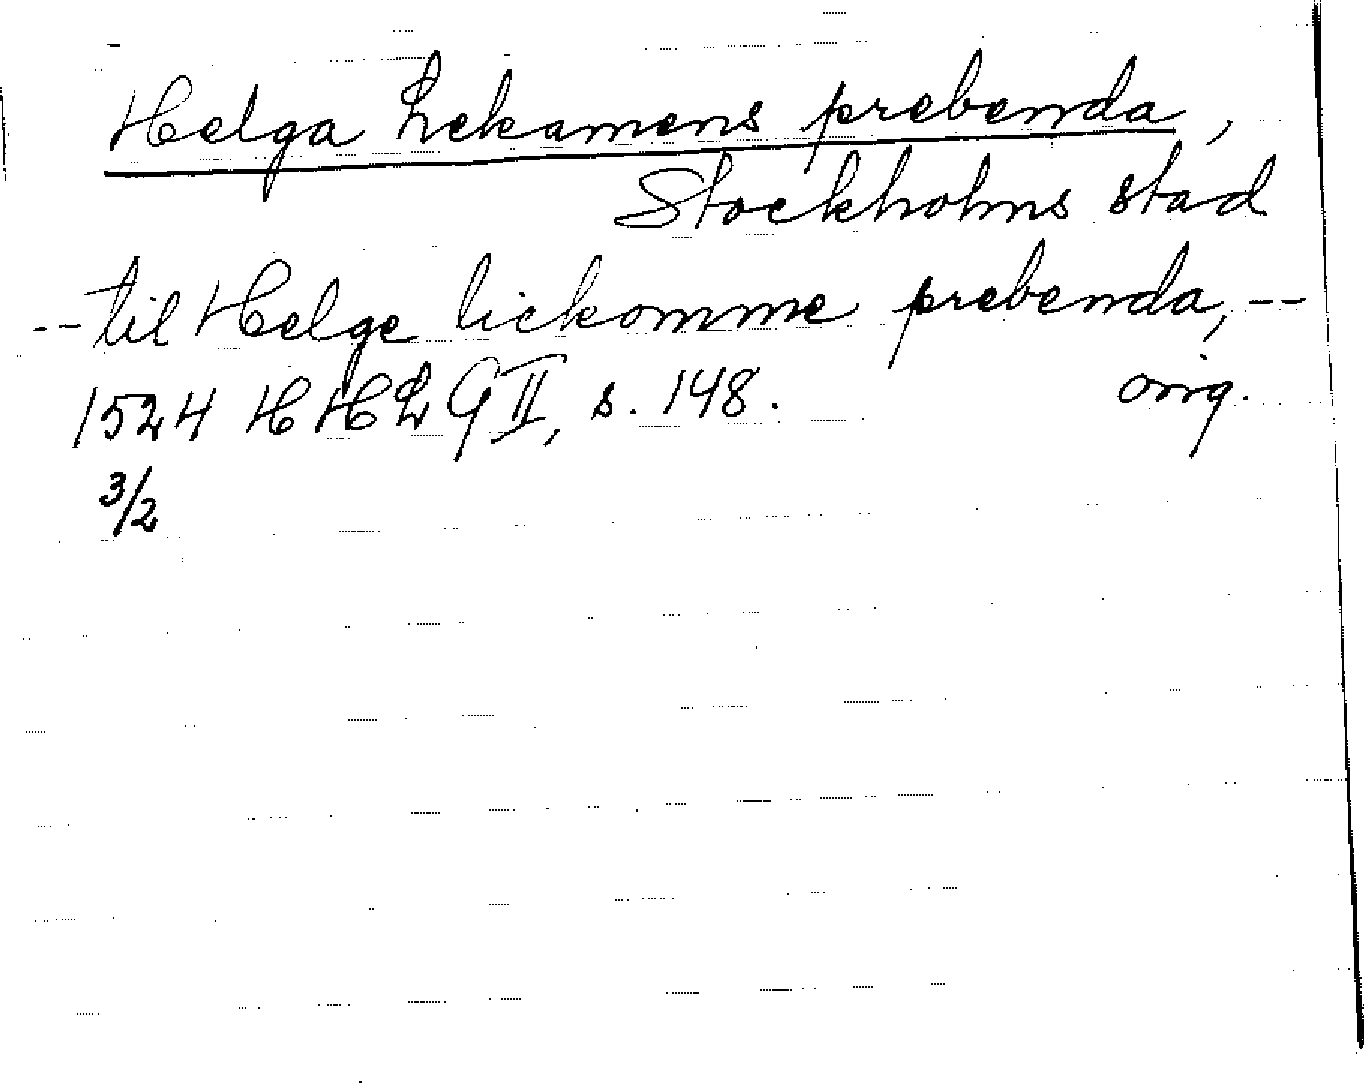 Helga Lekamens prebenda,
Stockholms stad
-- til Helge lickomme prebenda, --
1524 HHLG II, s. 148. orig.
3/2